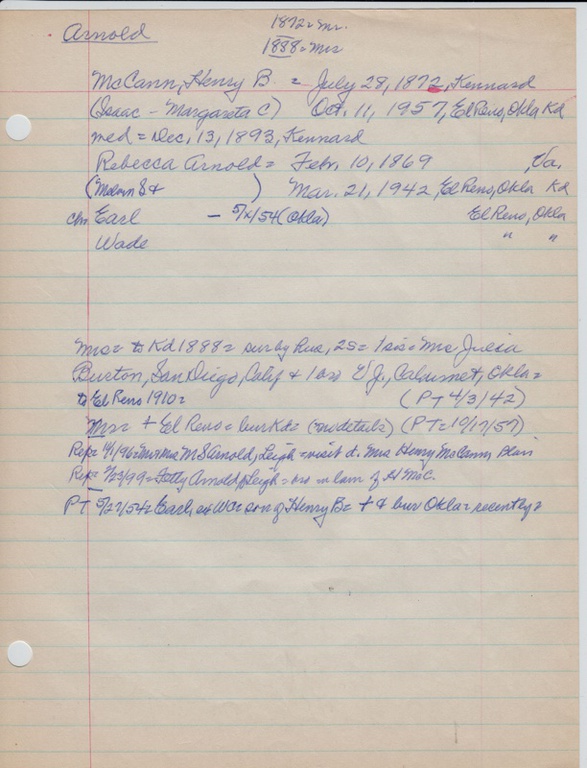 Arnold
1872 = Mr.
1888 = Mrs
McCann, Henry B. = July 28, 1872, Kennard
(Isaac - Margareta C) Oct. 11, 1957, El Reno, Okla Kd
med = Dec. 13, 1893, Kennard
Rebecca Arnold = Febr. 10, 1869 , Va.
( S + ) Mar. 21, 1942, El Reno, Okla Kd
chn Earl - 5/x/54 (Okla) El Reno, Okla
Wade " "
Mrs = to Kd 1888 = sur by Hus, 2S = 1 sis = Mrs Julia
Burton, San Diego, Calif + 1 bro W J, Calumet, Okla =
to El Reno 1910 = (PT 4/3/42)
Mr = + El Reno = bur Kd = (no details) (PT = 10/17/57)
Rep = Mr + Mrs M S Arnold, Leigh = visit d. Mrs Henry McCann Blair
Rep = Arnold, Leigh = bro in law of H McC.
PT 5/27/54 = Earl, ex WC = son of Henry B = + & bur Okla = recently =